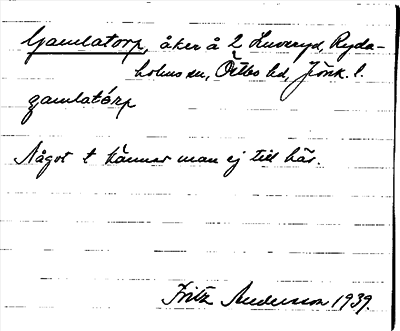 Gamlatorp, åker å 2 Huveryd, Ryda-
holms sn, Östbo hd, Jönk. l.
gamlatórp
Något t känner man ej till här.
Fritz Andersson 1939.